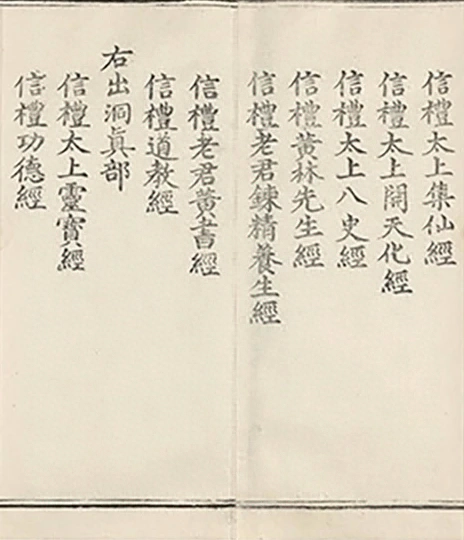 信禮太上集仙經
信禮太上開天化經
信禮太上八史經
信禮黃林先生經
信禮老君鍊精養生經
信禮老君黃書經
信禮道教經
右出洞真部
信禮太上靈寶經
信禮功德經